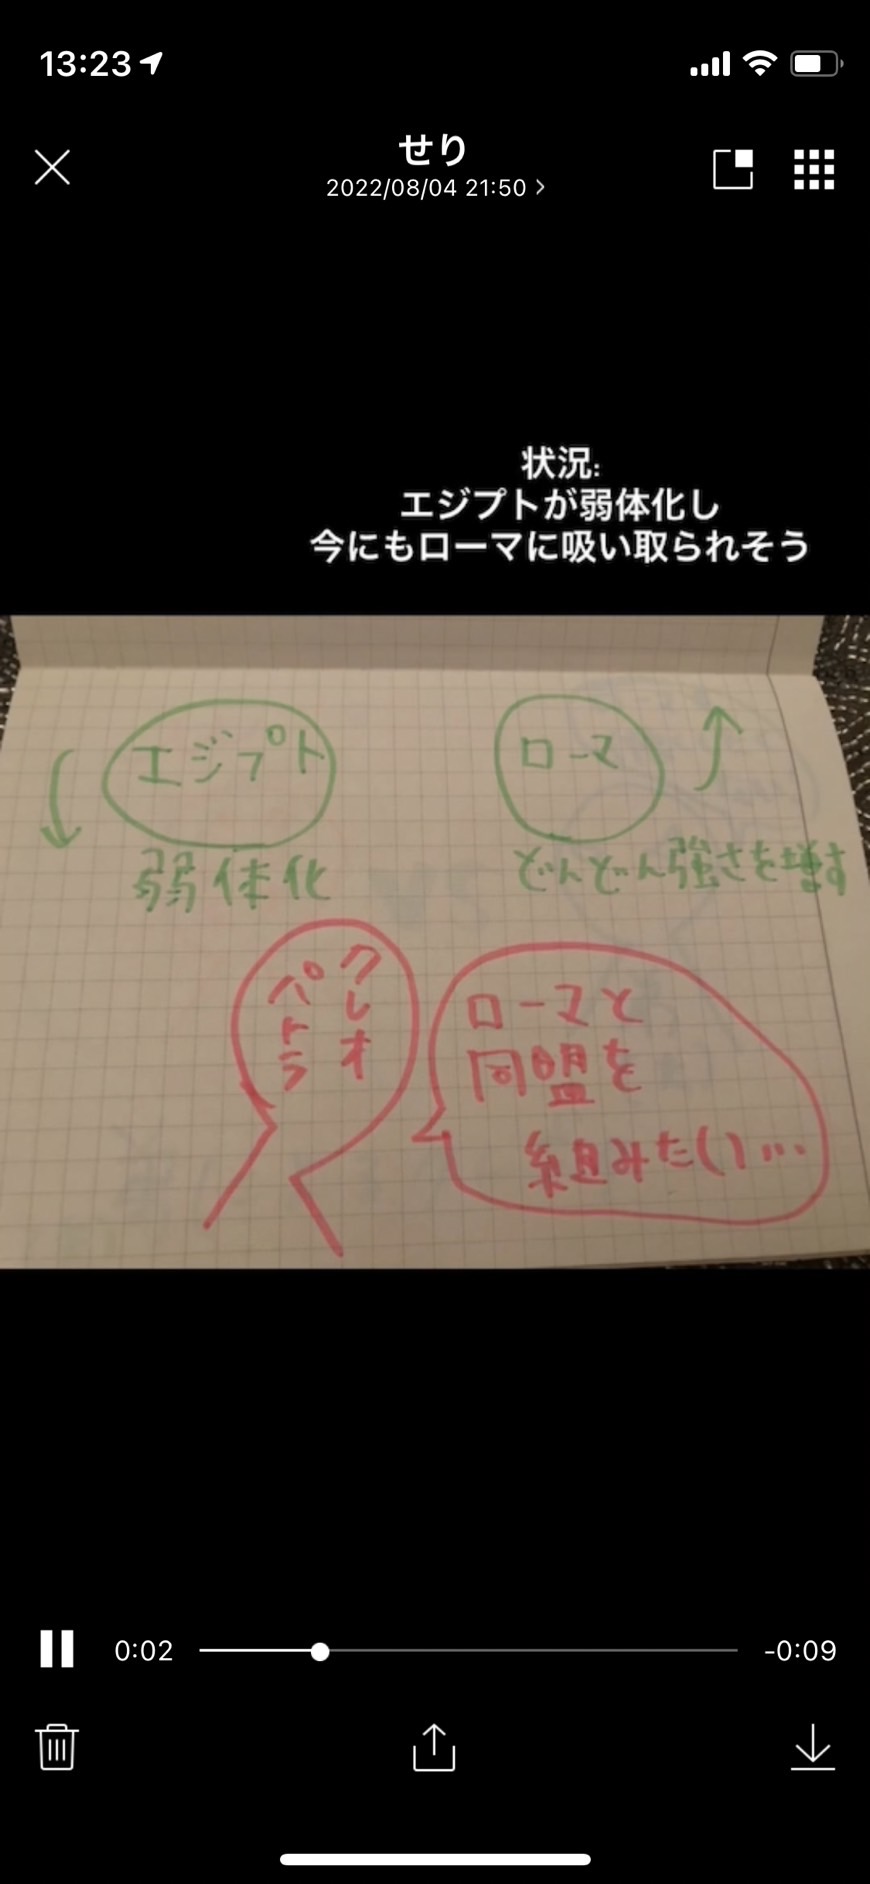 13:23
せり
2022/08/04 21:50
状況:
エジプトが弱体化し
今にもローマに吸い取られそう
エジプト
ローマ
弱体化
どんどん強さを増す
クレオ
ペトラ
ローマと
同盟を
組みたい...
0:02
-0:09